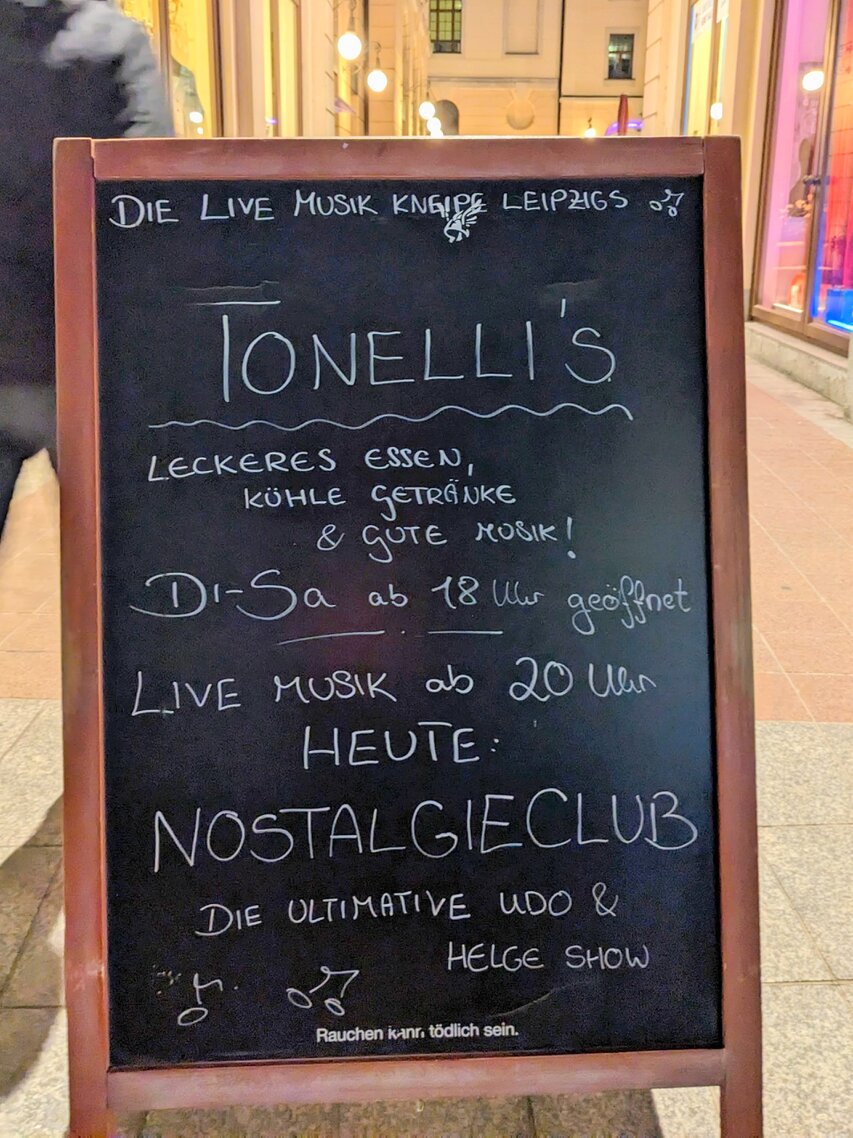 DIE LIVE MUSIK KNEIPE LEIPZIGS
TONELLI'S
LECKERES ESSEN,
KÜHLE GETRÄNKE
& GUTE MUSIK!
Di-Sa ab 18 Uhr geöffnet
LIVE MUSIK ab 20 Uhr
HEUTE:
NOSTALGIECLUB
DIE ULTIMATIVE UDO &
HELGE SHOW
Rauchen kann tödlich sein.